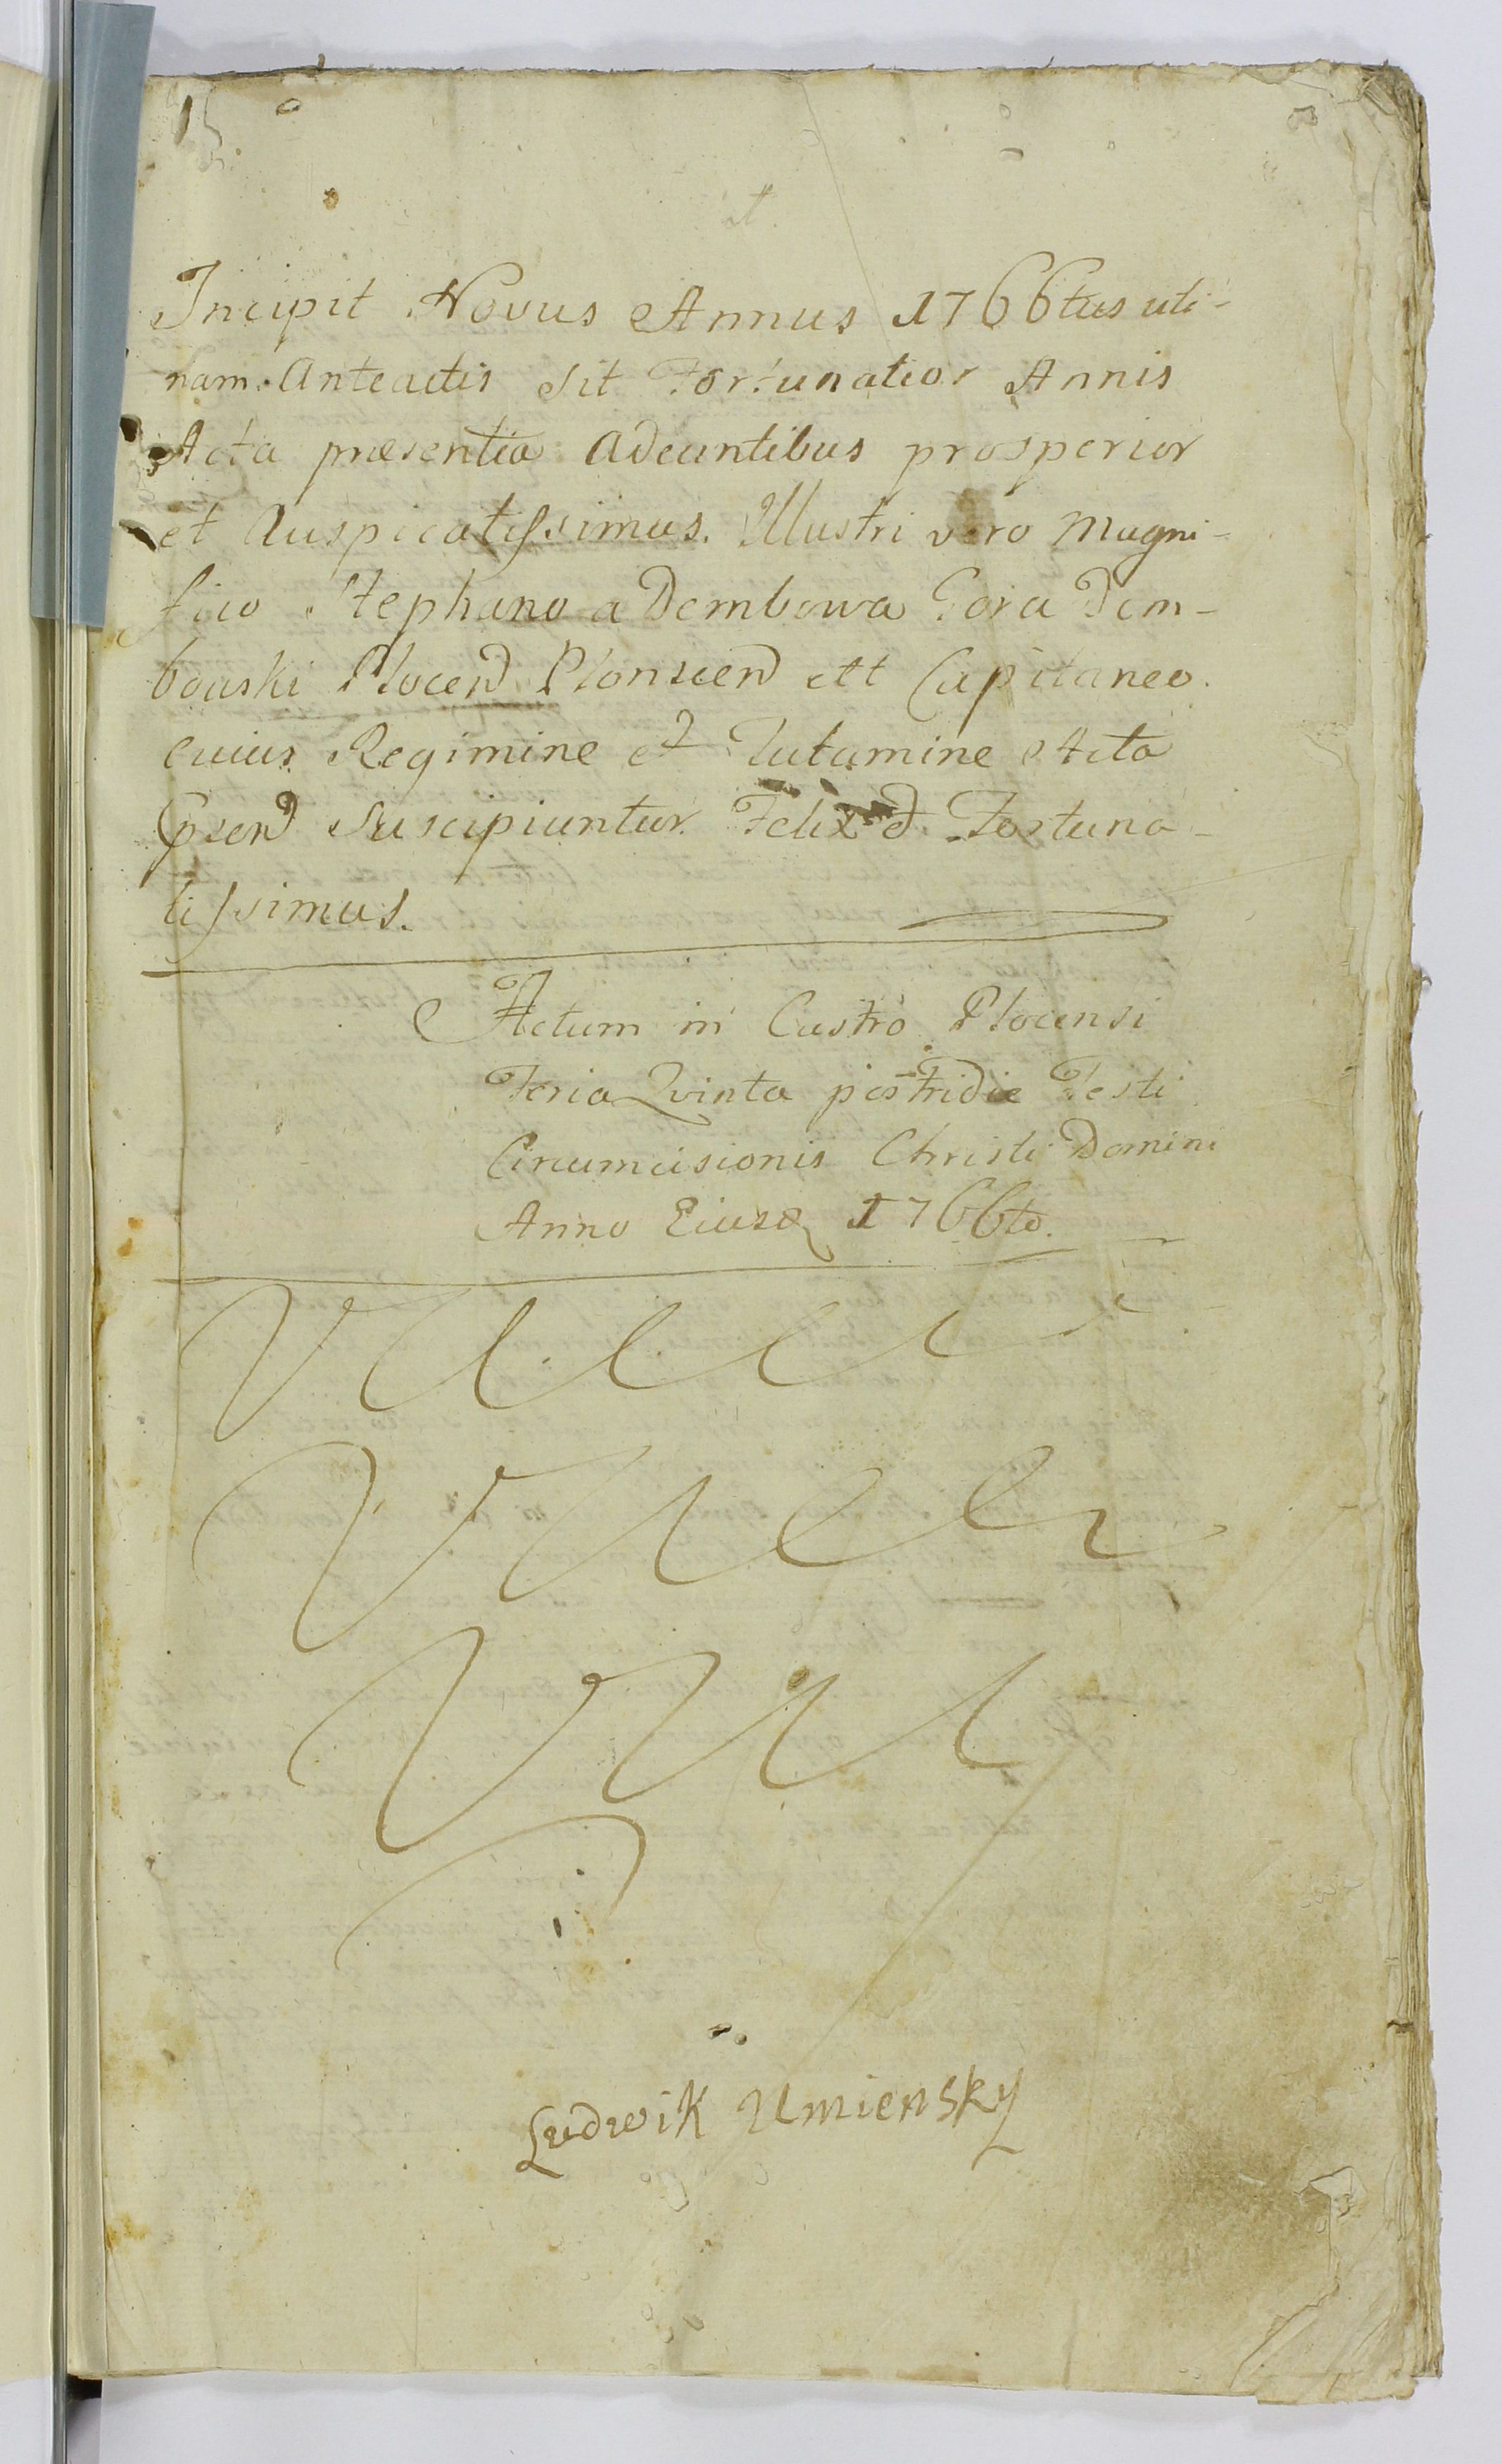 Incipit Novus Annus 1766tus uti-
nam Anteactis sit Fortunatior Annis
Acta præsentia adeuntibus prosperior
et Auspicatissimus. Illustri vero Magni-
fico Stephano a Dembowa Gora Dem-
bowski Plocen Plonscen ett Capitaneo.
cuius Regimine et Tutamine Acta
psen Suscipiuntur. Felix et Fortuna-
tissimus.
Actum in Castro Plocensi
Feria Qvinta postridie Festi
Circumcisionis Christi Domini
Anno Eiusq 1766to.
Ludwik Umiensky